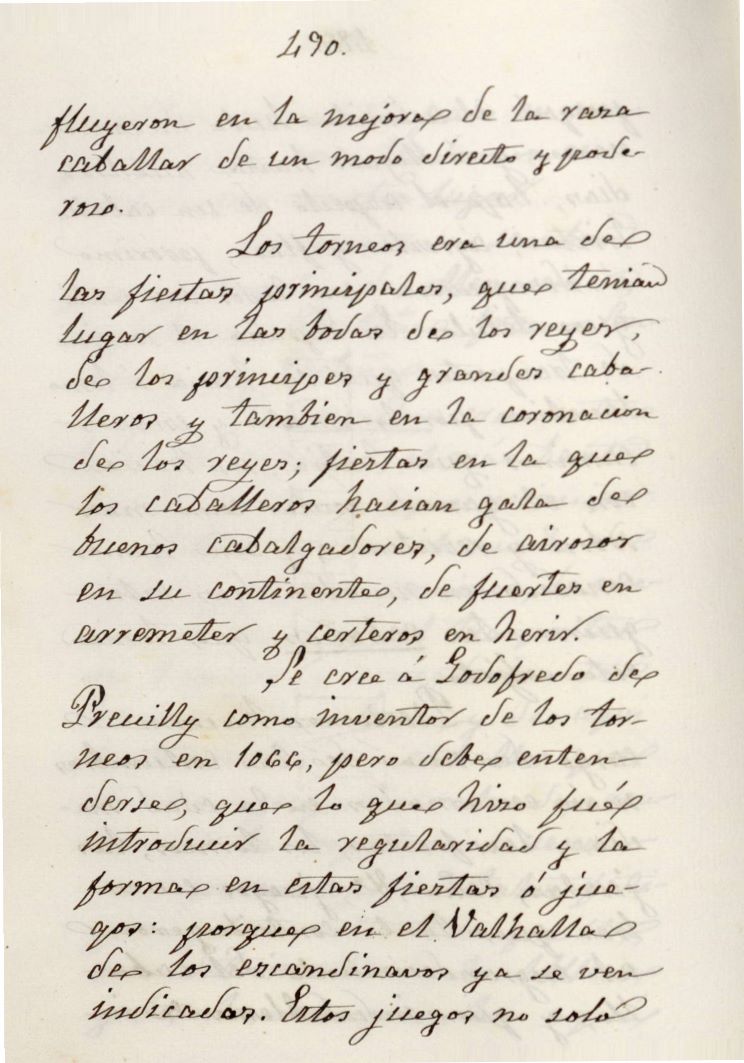 490.
fluyeron en la mejora de la raza
caballar de un modo directo y pode-
roso.
Los torneos era una de
las fiestas principales, que tenián
lugar en las bodas de los reyes,
de los principes y grandes caba-
lleros y tambien en la coronacion
de los reyes; fiestas en la que
los caballeros hacian gala de
buenos cabalgadores, de airosos
en su continente, de fuertes en
arremeter y certeros en herir.
Se cree á Godofredo de
Preuilly como inventor de los tor-
neos en 1066, pero debe enten-
derse, que lo que hizo fué
introducir la regularidad y la
forma en estas fiestas ó jue-
gos: porque en el Valhalla
de los escandinavos ya se ven
indicadas. Estos juegos no solo